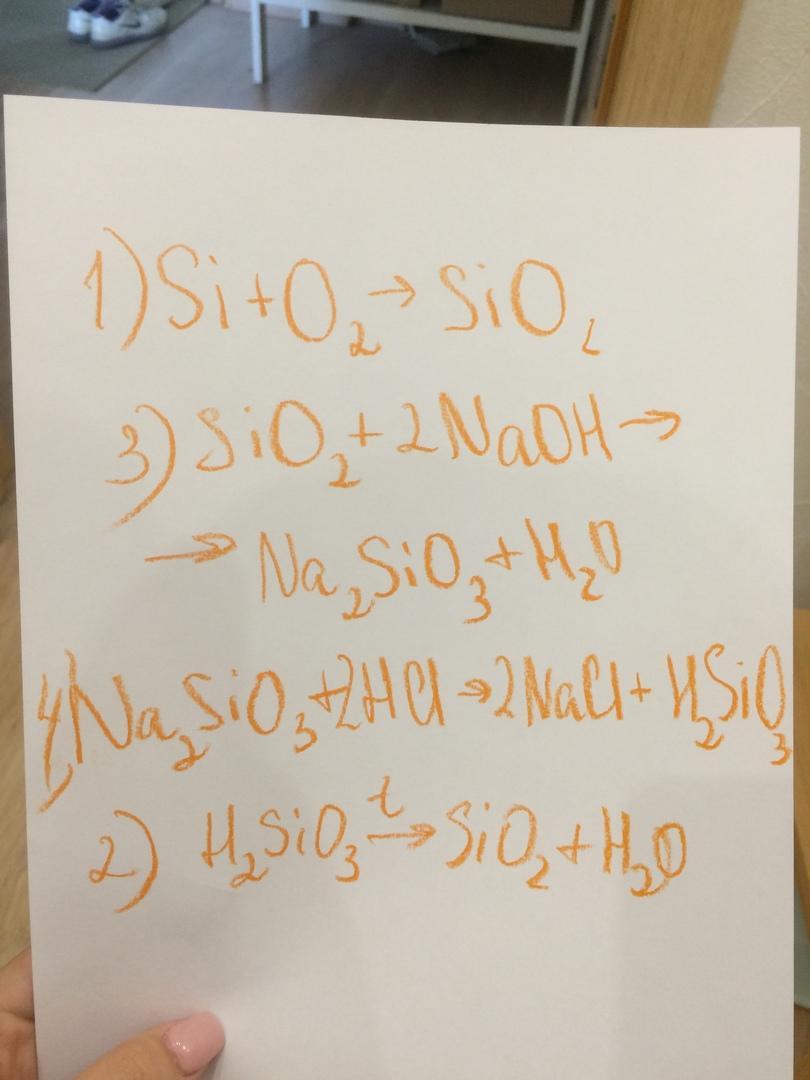 1) Si + O₂ → SiO₂
3) SiO₂ + 2NaOH →
→ Na₂SiO₃ + H₂O
4) Na₂SiO₃ + 2HCl → 2NaCl + H₂SiO₃
2) H₂SiO₃ t→ SiO₂ + H₂O